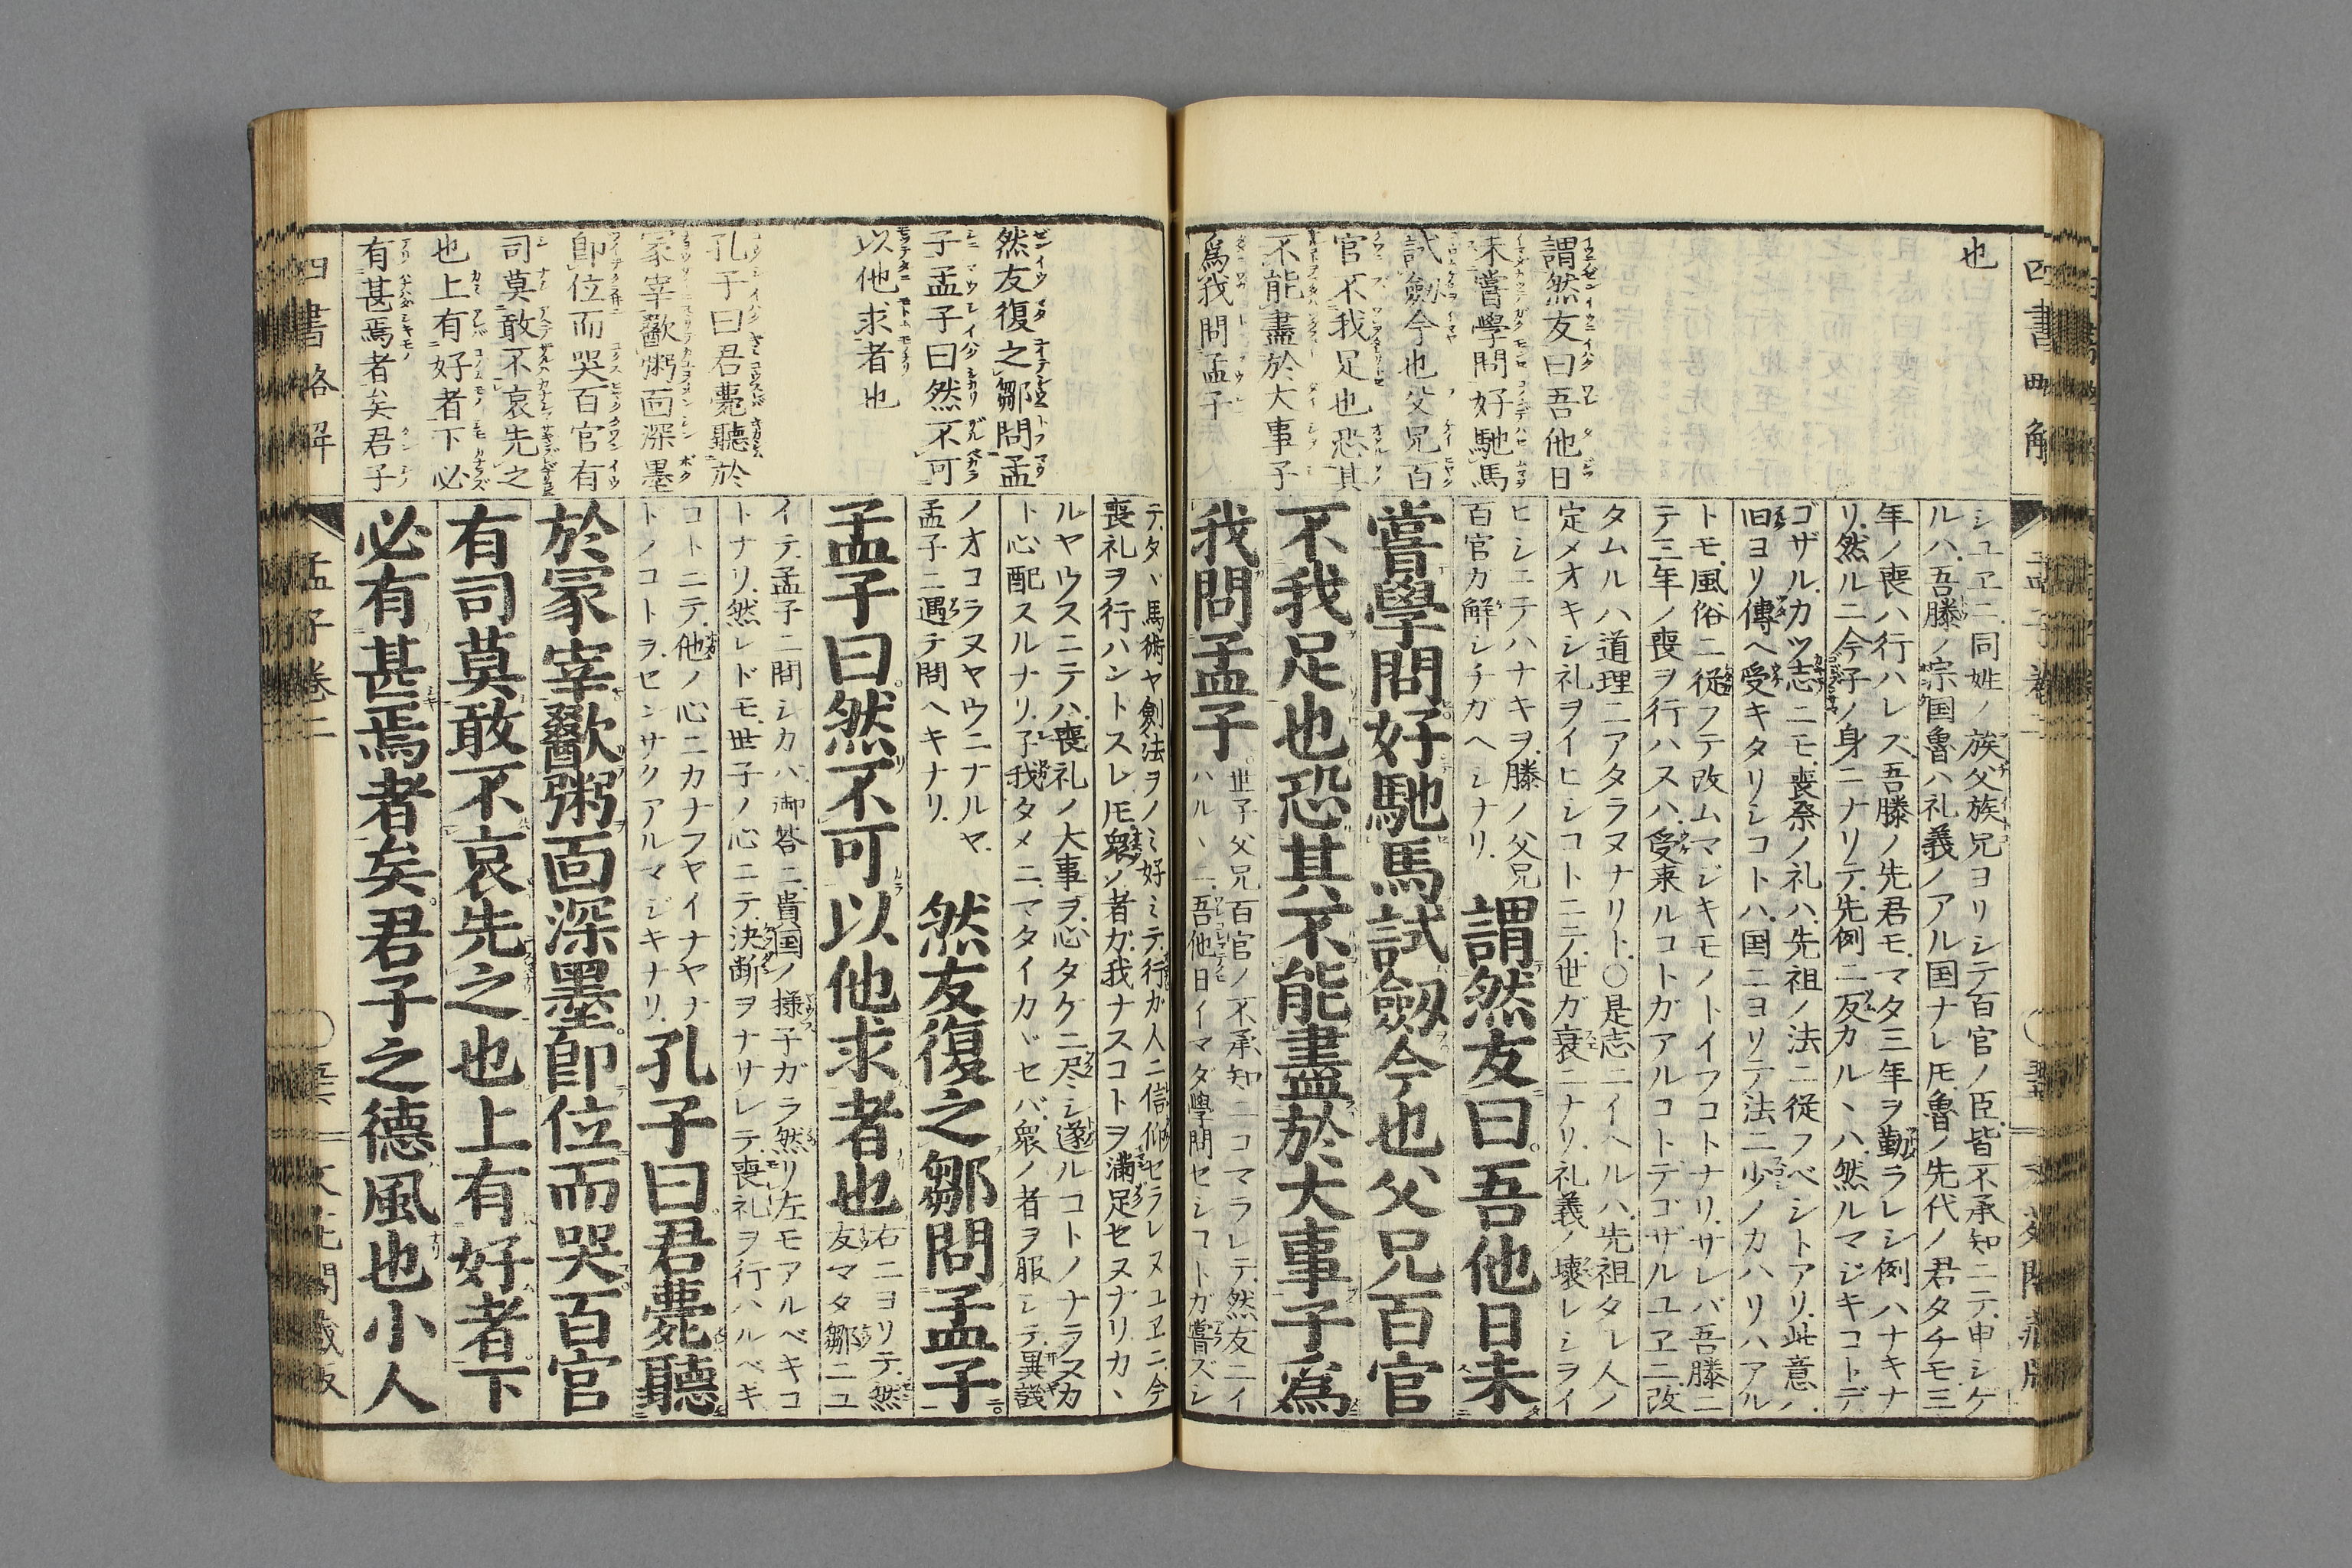 四書略解
也
謂然友曰吾他日
未嘗學問好馳馬
試劔今也父兄百
官不我足也恐其
不能盡於大事子
爲我問孟子
シユヱニ同姓ノ族父族兄ヨリシテ百官ノ臣皆不承知ニテ申シケ
ルハ吾滕ノ宗国魯ハ礼義ノアル国ナレ𪜈魯ノ先代ノ君タチモ三
年ノ喪ハ行ハレズ吾滕ノ先君モマタ三年ヲ勤ラレシ例ハナキナ
リ然ルニ今子ノ身ニナリテ先例ニ反カルヽハ然ルマジキコトデ
ゴザルカツ志ニモ喪祭ノ礼ハ先祖ノ法ニ従フベシトアリ此意ハ
旧ヨリ傳ヘ受キタリシコトハ国ニヨリテ法ニ少ノカハリハアル
トモ風俗ニ従フテ改ムマジキモノトイフコトナリサレバ吾滕ニ
テ三年ノ喪ヲ行ハスハ受来ルコトガアルコトデゴザルユヱニ改
タムルハ道理ニアタラヌナリト○是志ニイヘルハ先祖タレ人ノ
定メオキシ礼ヲイヒシコトニテ世ガ衰ニナリ礼義ノ壞レシヲイ
ヒシニテハナキヲ滕ノ父兄
百官ガ解シチガヘシナリ
謂然友曰吾他日未
嘗學問好馳馬試劔今也父兄百官
不我足也恐其不能盡於大事子爲
我問孟子
世子父兄百官ノ不承知ニコマラレテ然友ニイ
ハルヽニ吾他日イマダ學問セシコトガ嘗ズシ
然友復之鄒問孟
子孟子曰然不可
以他求者也
孔子曰君薨聽於
冢宰歠粥面深墨
卽位而哭百官有
司莫敢不哀先之
也上有好者下必
有甚焉者矣君子
テタヽ馬術ヤ劍法ヲノミ好ミテ行ガ人ニ信仰セラレヌユヱニ今
喪礼ヲ行ハントスレ𪜈衆ノ者ガ我ナスコトヲ滿足セヌナリカヽ
ルヤウスニテハ喪礼ノ大事ヲ心タケニ尽シ遂ルコトノナラヌカ
ト心配スルナリ子我タメニマタイカヾセバ衆ノ者ヲ服シテ異議
ノオコラヌヤウニナルヤ
孟子ニ遇テ問ヘキナリ
然友復之鄒問孟子
孟子曰然不可以他求者也
右ニヨリテ然
友マタ鄒ニユ
イテ孟子ニ問シカバ御答ニ貴国ノ様子ガラ然リ左モアルベキコ
トナリ然レドモ世子ノ心ニテ決断ヲナサレテ喪礼ヲ行ハルベキ
コトニテ他ノ心ニカナフヤイナヤナ
トノコトヲセンサクアルマジキナリ
孔子曰君薨聽
於冢宰歠粥面深墨卽位而哭百官
有司莫敢不哀先之也上有好者下
必有甚焉者矣君子之德風也小人
四書略解
孟子卷二